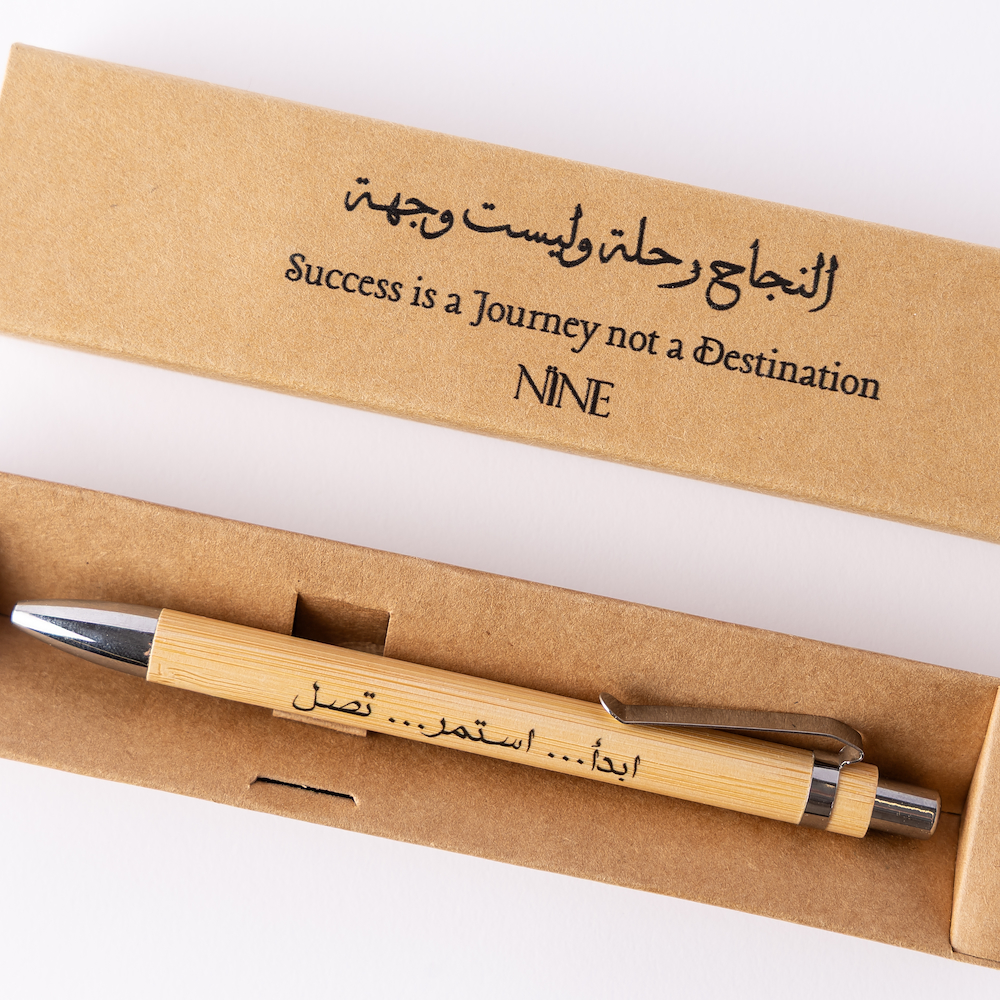 النجاح رحلة وليست وجهة
Success is a Journey not a Destination
NINE
ابدأ... استمر... تصل